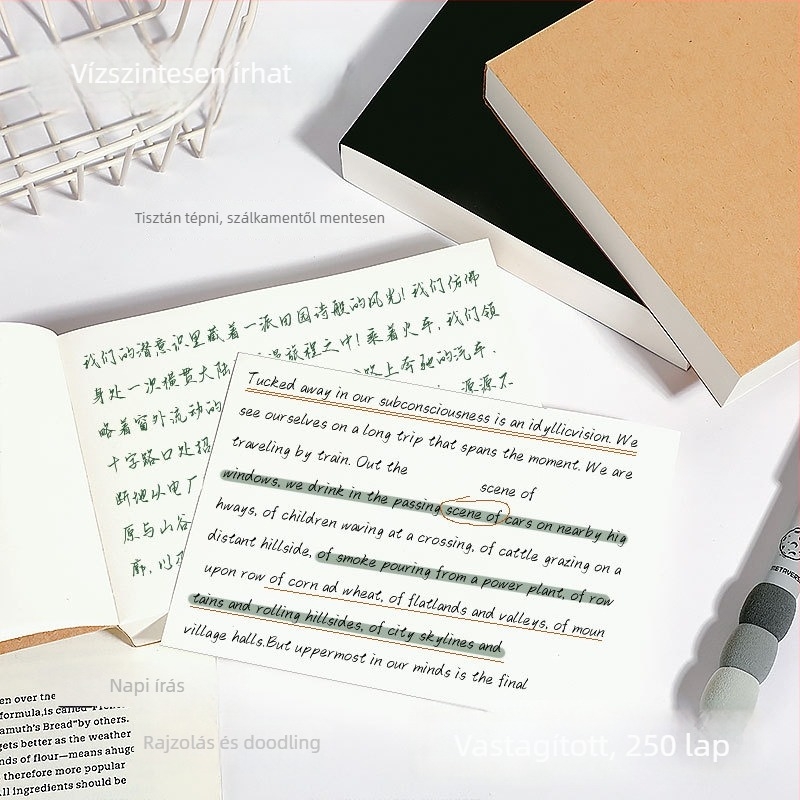 Vízszintesen írhat
Tisztán tépni, szálkamentől mentesen
我们的潜意识里藏着一派田园诗般的风光！我们仿佛
身处一次横贯大陆
旅程之中！乘着火车，我们领
略着窗外流动的
路上奔驰的汽车、
十字路口处招
源源不
断地从电厂
原与山谷
廓，以及
Tucked away in our subconsciousness is an idyllicvision. We
see ourselves on a long trip that spans the moment. We are
traveling by train. Out the
scene of
windows, we drink in the passing scene of cars on nearby hig
hways, of children waving at a crossing, of cattle grazing on a
distant hillside, of smoke pouring from a power plant, of row
upon row of corn ad wheat, of flatlands and valleys, of moun
tains and rolling hillsides, of city skylines and
village halls.But uppermost in our minds is the final
METAVERS
Napi írás
Rajzolás és doodling
Vastagított, 250 lap
en over the
formula,is called
amuth's Bread"by others.
gets better as the weather
nds of flour—means ahuge
therefore more popular
All ingredients should be